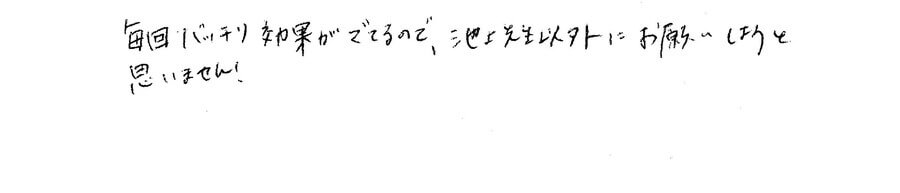 毎回バッチリ効果がでてるので、池上先生以外にお願いしようと
思いません!